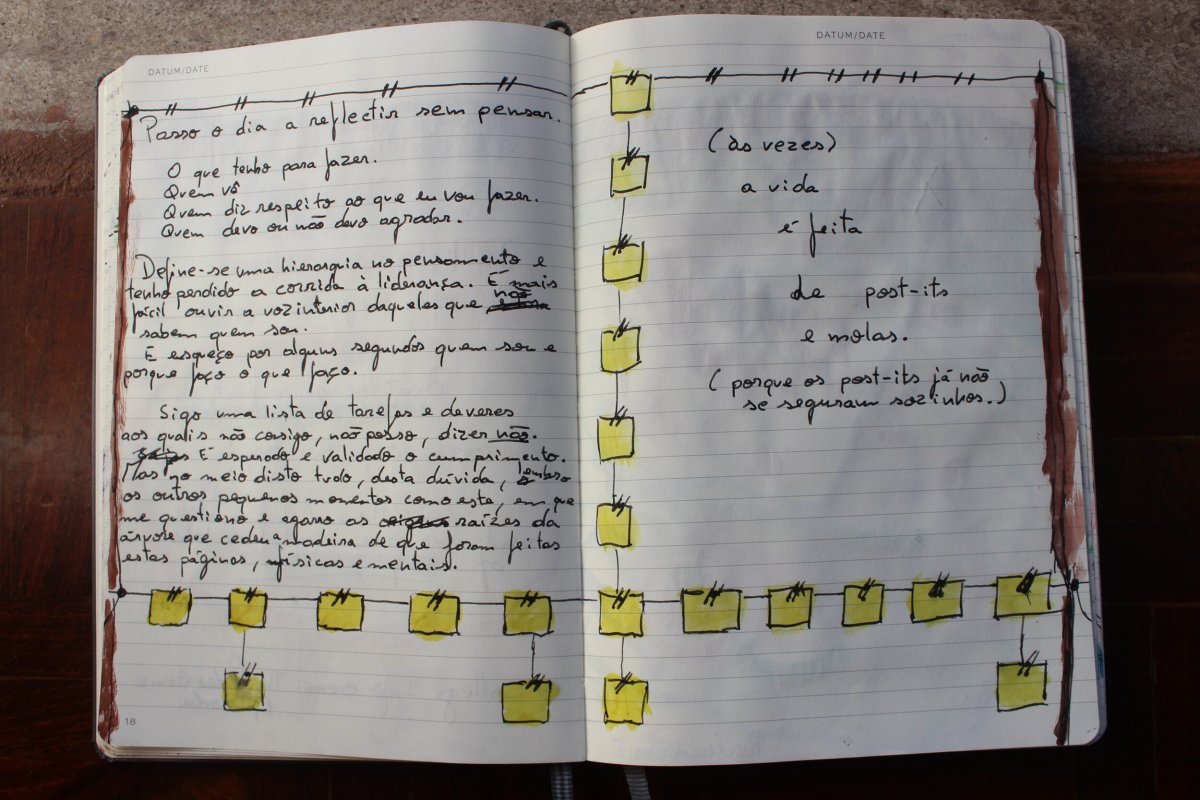 DATUM/DATE
Passo o dia a reflectir sem pensar.
O que tenho para fazer.
Quem vê
Quem diz respeito ao que eu vou fazer.
Quem devo ou não devo agradar.
Define-se uma hierarquia no pensamento e
tenho perdido a corrida à liderança. É mais
fácil ouvir a voz interior daqueles que não
sabem quem sou.
E esqueço por alguns segundos quem sou e
porque faço o que faço.
Sigo uma lista de tarefas e deveres
aos quais não consigo, não posso, dizer não.
É esperado e validado o cumprimento.
Mas no meio disto tudo, desta dúvida, lembro
os outros pequenos momentos como este, em que
me questiono e agarro as raízes da
árvore que cedeu a madeira de que foram feitas
estas páginas, físicas e mentais.
18
DATUM/DATE
(às vezes)
a vida
é feita
de post-its
e molas.
(porque os post-its já não
se seguram sozinhos.)